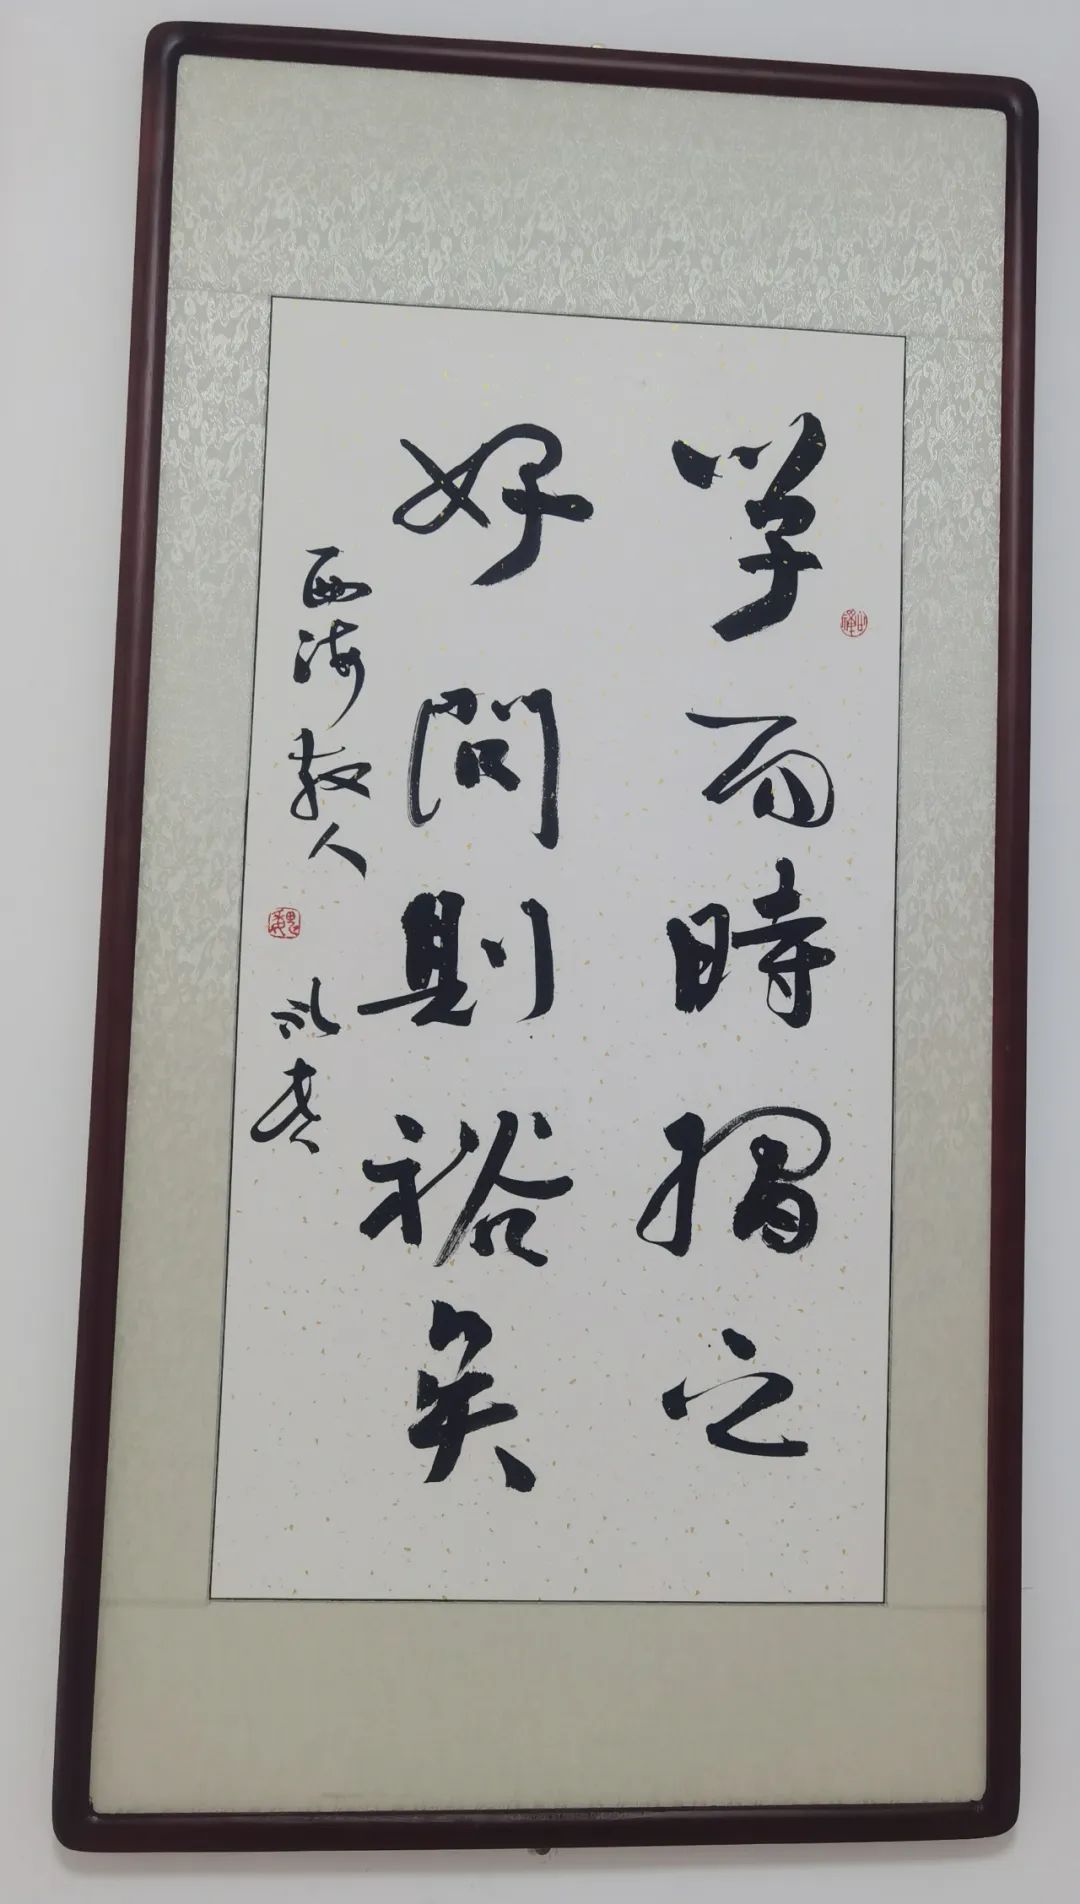 学而時習之
好問則裕矣
西海散人
魏